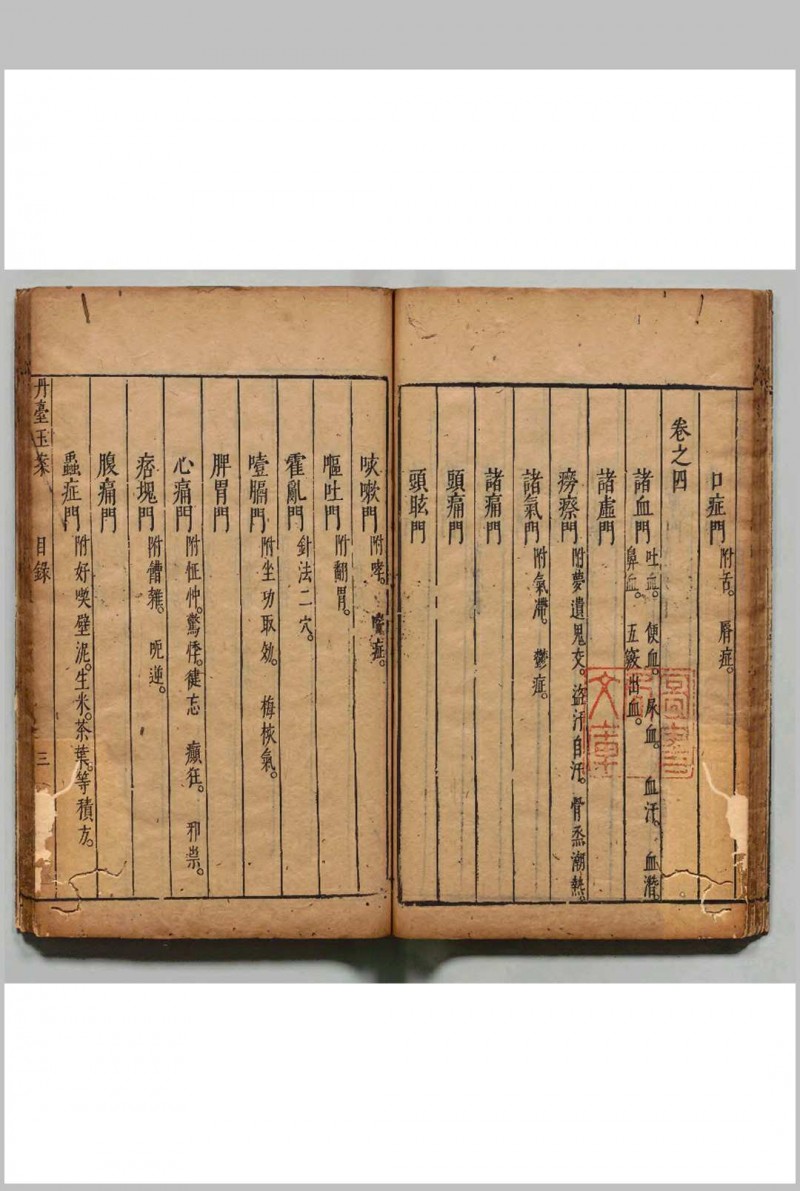 口症門 附舌。 唇症。
卷之四
諸血門 吐血。 便血。 尿血。 血汗。 血潛
鼻血。 五竅出血。
諸虛門
癆瘵門 附夢遺鬼交。盜汗自汗。骨烝潮熱。
諸氣門 附氣滯。 鬱症。
諸痛門
頭痛門
頭眩門
咳嗽門 附哮。 喘症。
嘔吐門 附翻胃。
霍亂門 針法二穴。
噎膈門 附坐功取効。 梅核氣。
脾胃門
心痛門 附怔忡。驚悸。健忘 癲狂。 邪祟。
痞塊門 附懵雜。 呃逆。
腹痛門
蟲症門 附好喫壁泥。生米。茶葉。等積方。
丹臺玉案 目錄 三